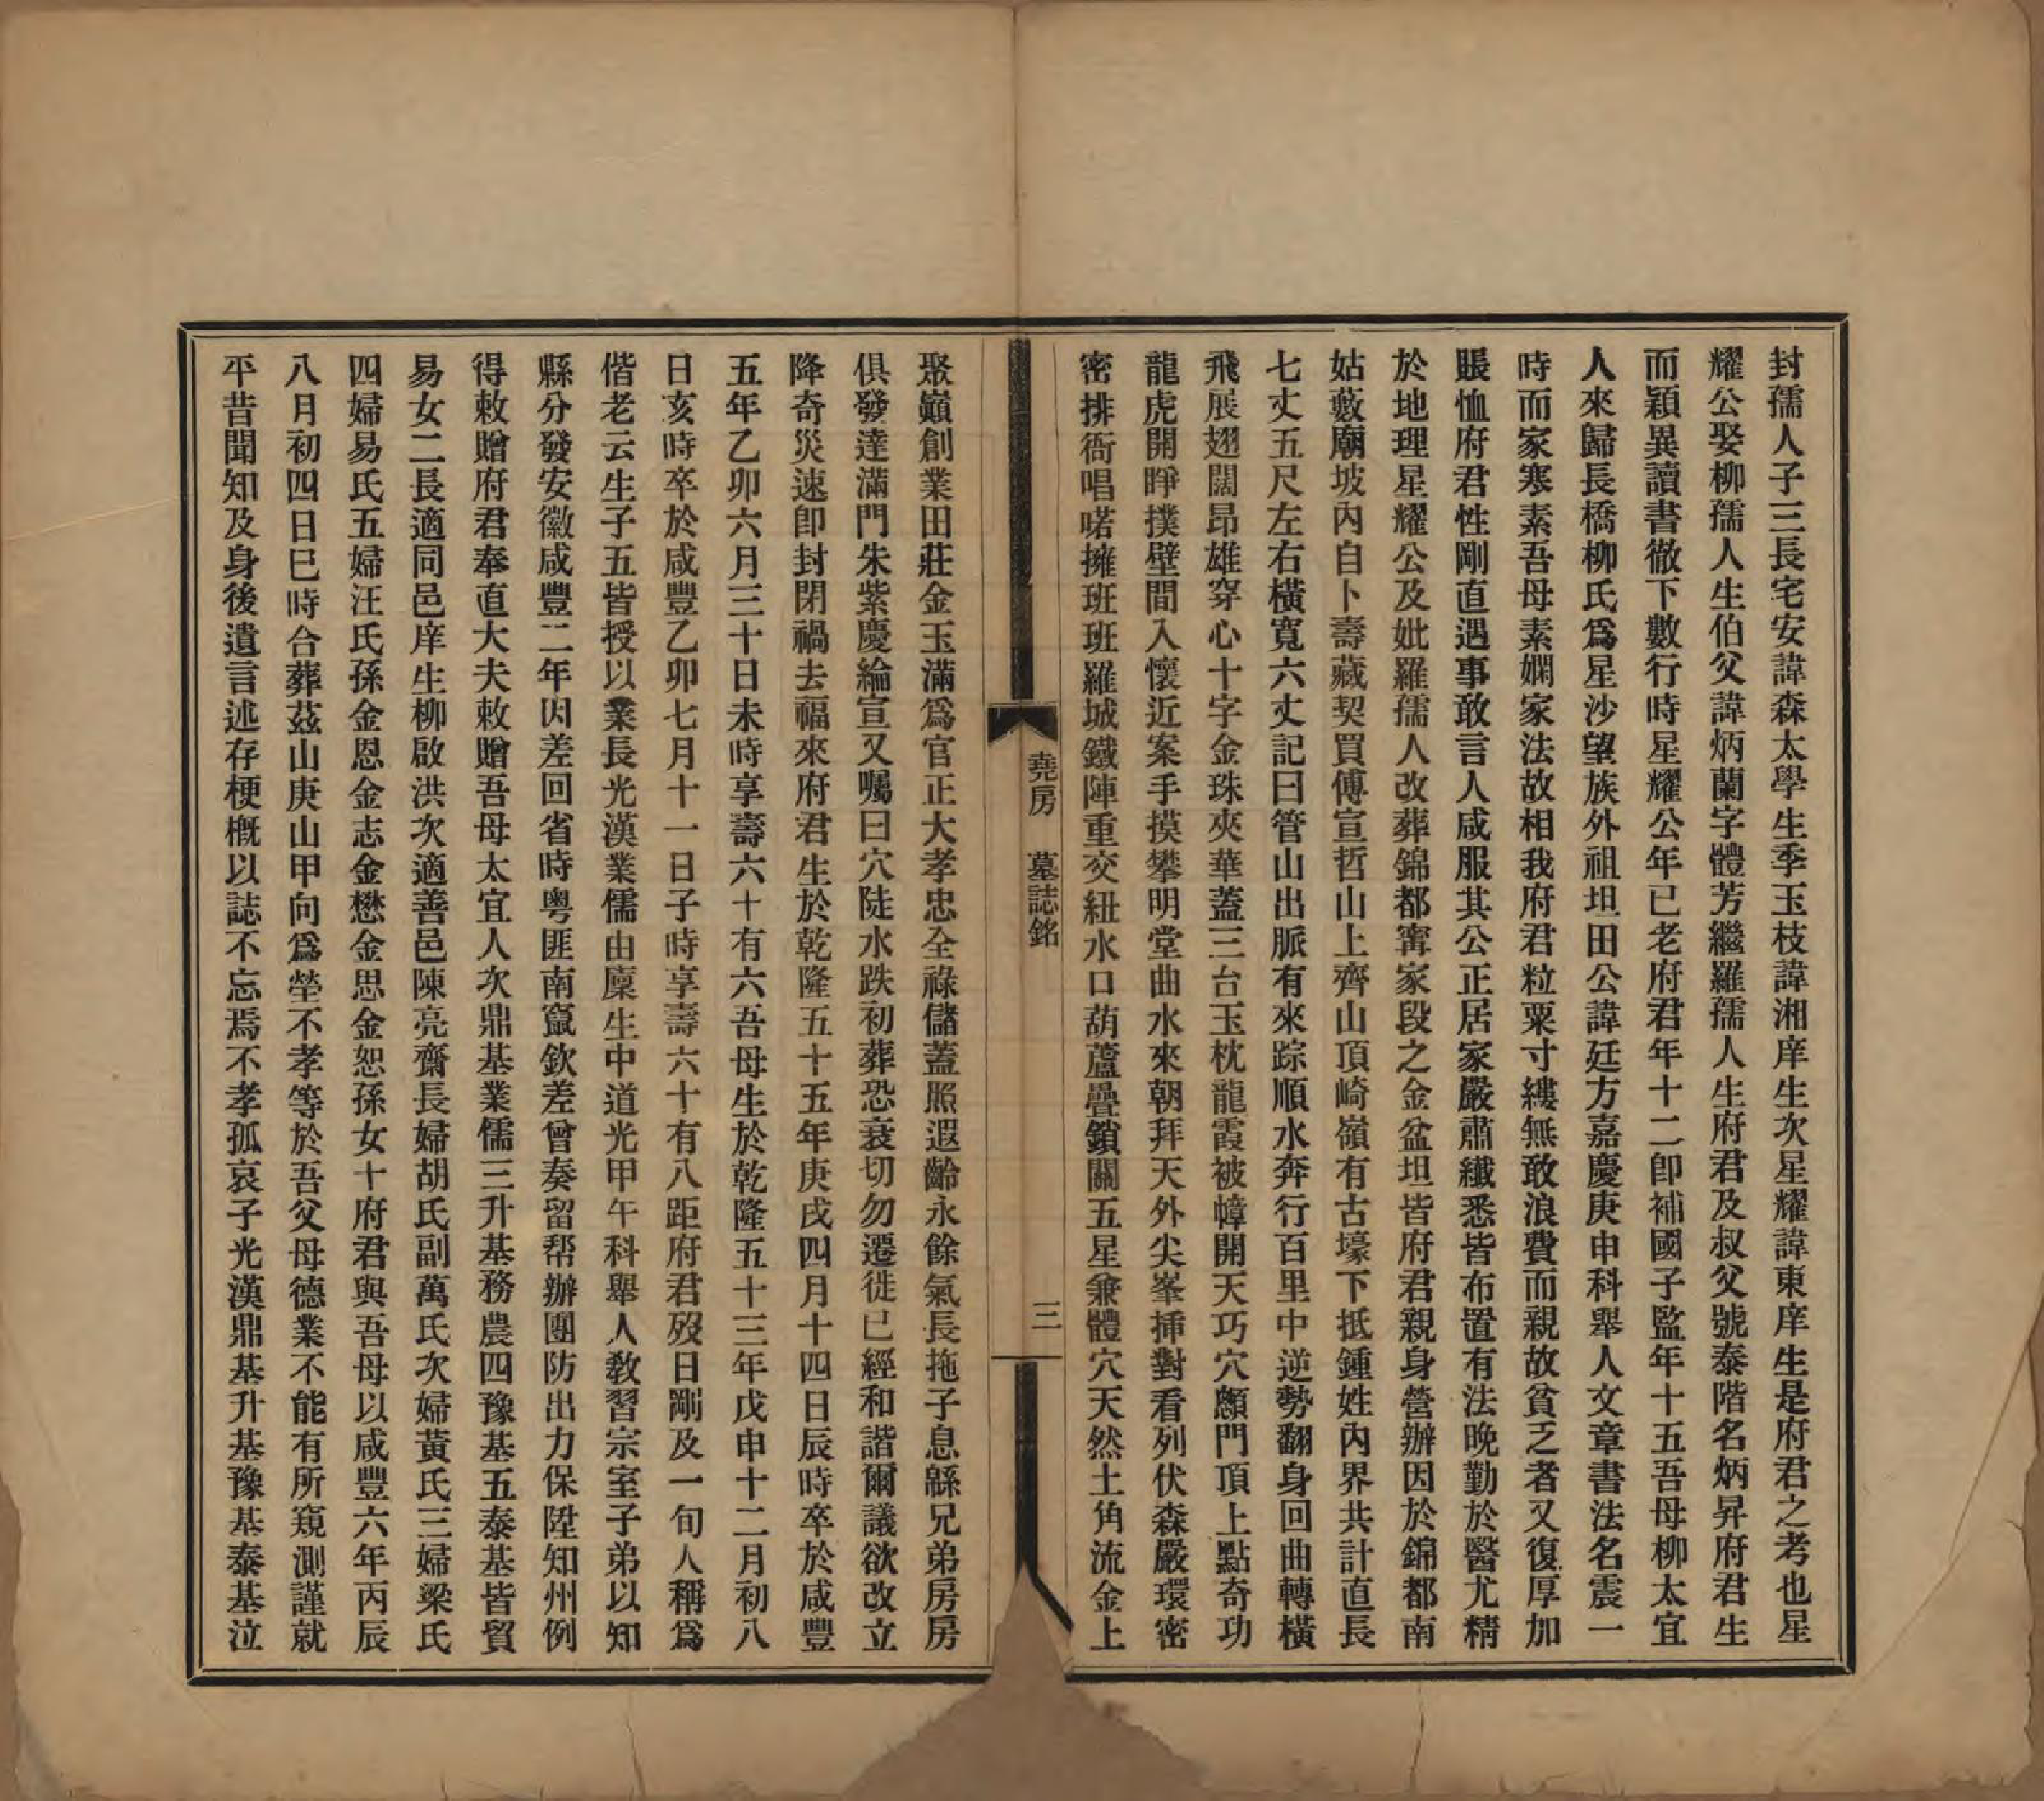 封孺人子三長宅安諱森太學生季玉枝諱湘庠生次星耀諱東庠生是府君之考也星
耀公娶柳孺人生伯父諱炳蘭字體芳繼羅孺人生府君及叔父號泰階名炳昇府君生
而穎異讀書徹下數行時星耀公年已老府君年十二卽補國子監年十五吾母柳太宜
人來歸長橋柳氏爲星沙望族外祖坦田公諱廷方嘉慶庚申科舉人文章書法名震一
時而家寒素吾母素嫻家法故相我府君粒粟寸縷無敢浪費而親故貧乏者又復厚加
賑恤府君性剛直遇事敢言人咸服其公正居家嚴肅纖悉皆布置有法晚勤於醫尤精
於地理星耀公及妣羅孺人改葬錦都寗家段之金盆坦皆府君親身營辦因於錦都南
姑藪廟坡內自卜壽藏契買傅宣哲山上齊山頂崎嶺有古壕下抵鍾姓內界共計直長
七丈五尺左右橫寬六丈記曰管山出脈有來踪順水奔行百里中逆勢翻身回曲轉橫
飛展翅闊昂雄穿心十字金珠夾華蓋三台玉枕龍霞被幛開天巧穴顱門頂上點奇功
龍虎開睜撲壁間入懷近案手摸攀明堂曲水來朝拜天外尖峯揷對看列伏森嚴環密
密排衙唱喏擁班班羅城鐵陣重交紐水口葫蘆疊鎖關五星兼體穴天然土角流金上
堯房　墓誌銘　三
聚巔創業田莊金玉滿爲官正大孝忠全祿儲蓋照遐齡永餘氣長拖子息緜兄弟房房
俱發達滿門朱紫慶綸宣又囑曰穴陡水跌初葬恐衰切勿遷徙已經和諧爾議欲改立
降奇災速卽封閉禍去福來府君生於乾隆五十五年庚戌四月十四日辰時卒於咸豐
五年乙卯六月三十日未時享壽六十有六吾母生於乾隆五十三年戊申十二月初八
日亥時卒於咸豐乙卯七月十一日子時享壽六十有八距府君歿日剛及一旬人稱爲
偕老云生子五皆授以業長光漢業儒由廩生中道光甲午科舉人教習宗室子弟以知
縣分發安徽咸豐二年因差回省時粤匪南竄欽差曾奏留帮辦團防出力保陞知州例
得敕贈府君奉直大夫敕贈吾母太宜人次鼎基業儒三升基務農四豫基五泰基皆貿
易女二長適同邑庠生柳啟洪次適善邑陳亮齋長婦胡氏副萬氏次婦黃氏三婦梁氏
四婦易氏五婦汪氏孫金恩金志金懋金思金恕孫女十府君與吾母以咸豐六年丙辰
八月初四日巳時合葬茲山庚山甲向爲塋不孝等於吾父母德業不能有所窺測謹就
平昔聞知及身後遺言述存梗槪以誌不忘焉不孝孤哀子光漢鼎基升基豫基泰基泣